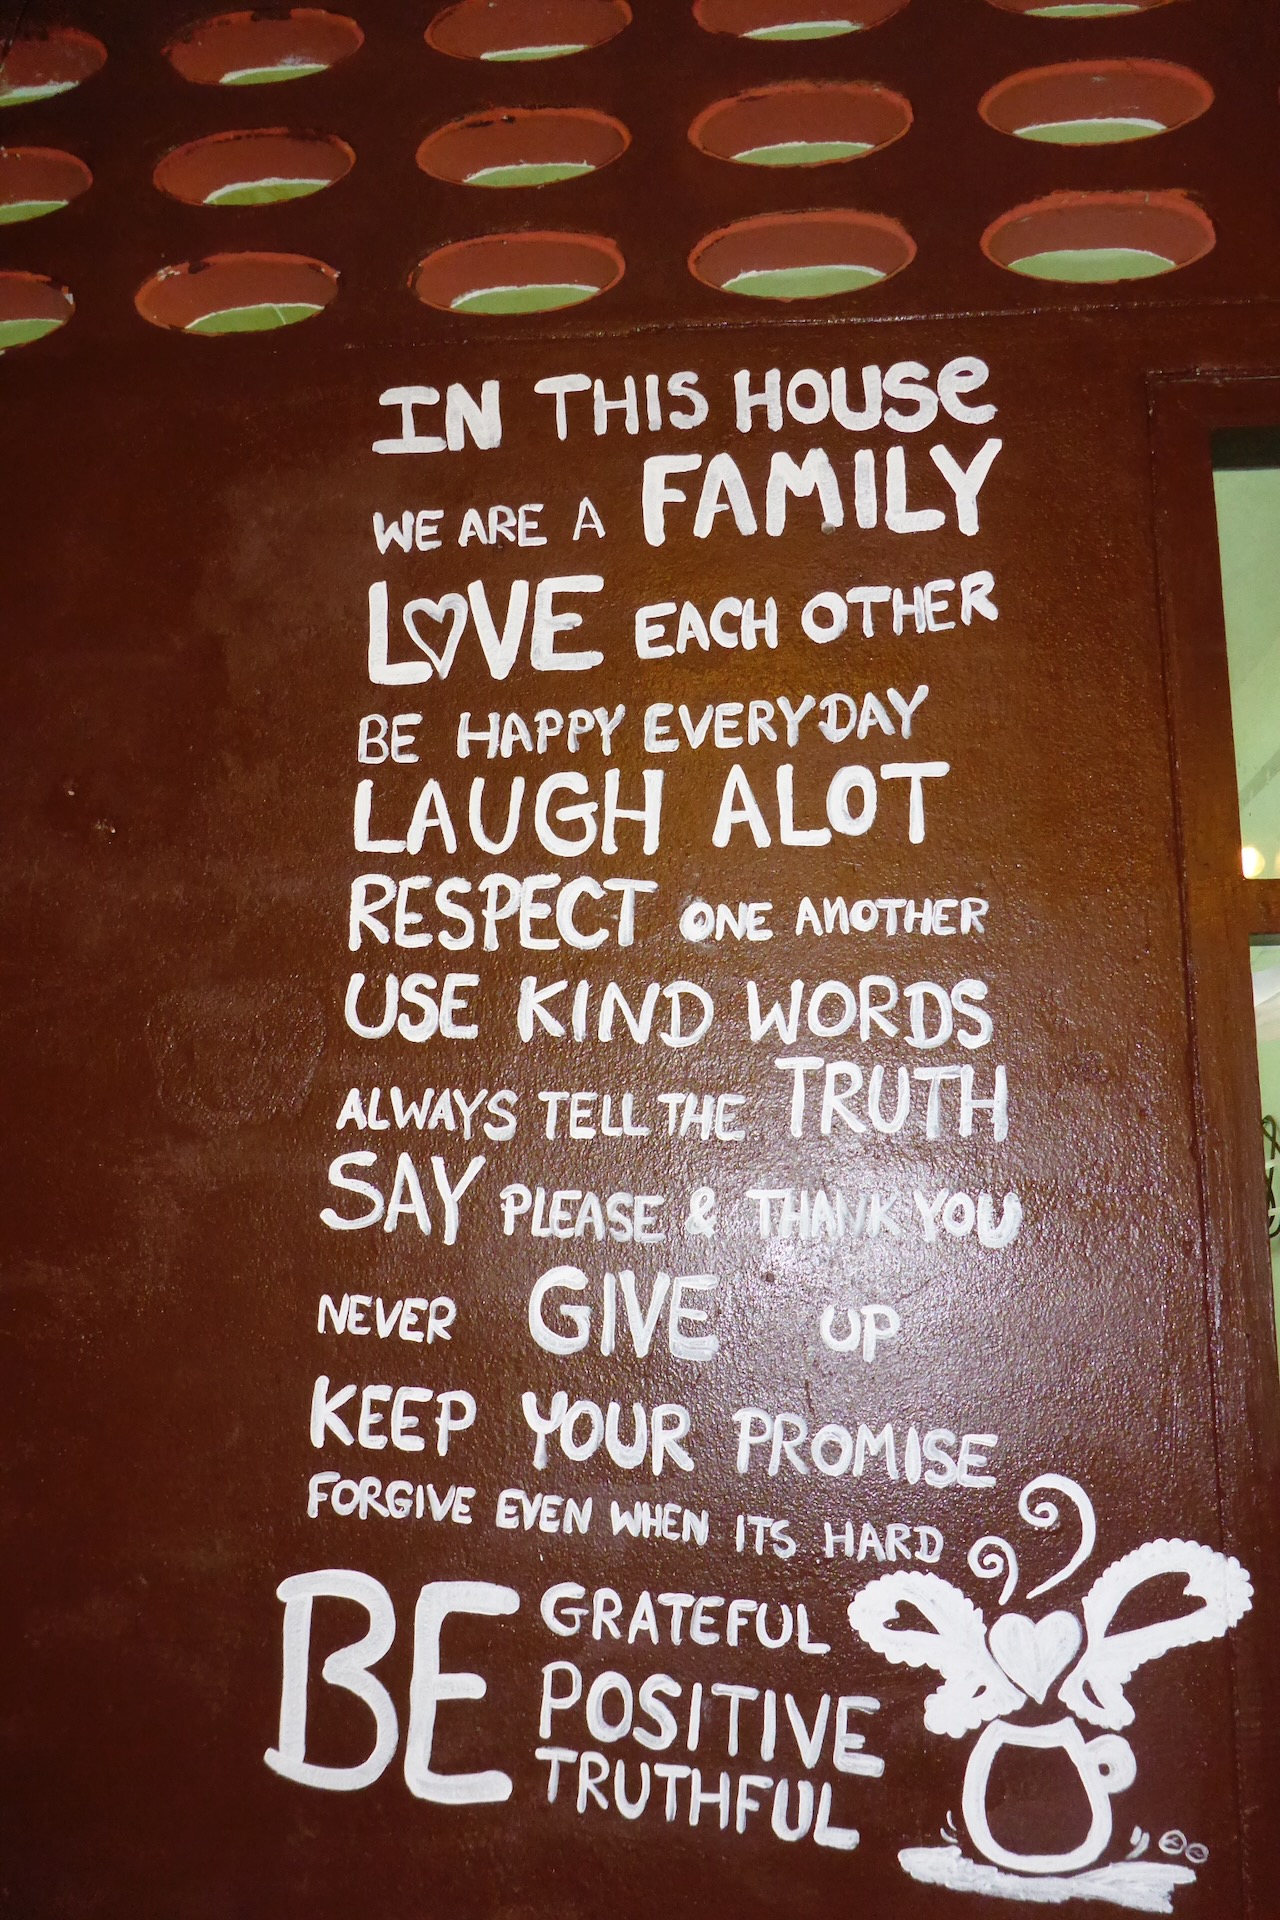 IN THIS HOUSE
WE ARE A FAMILY
LOVE EACH OTHER
BE HAPPY EVERYDAY
LAUGH ALOT
RESPECT ONE ANOTHER
USE KIND WORDS
ALWAYS TELL THE TRUTH
SAY PLEASE & THANK YOU
NEVER GIVE UP
KEEP YOUR PROMISE
FORGIVE EVEN WHEN ITS HARD
BE GRATEFUL
POSITIVE
TRUTHFUL